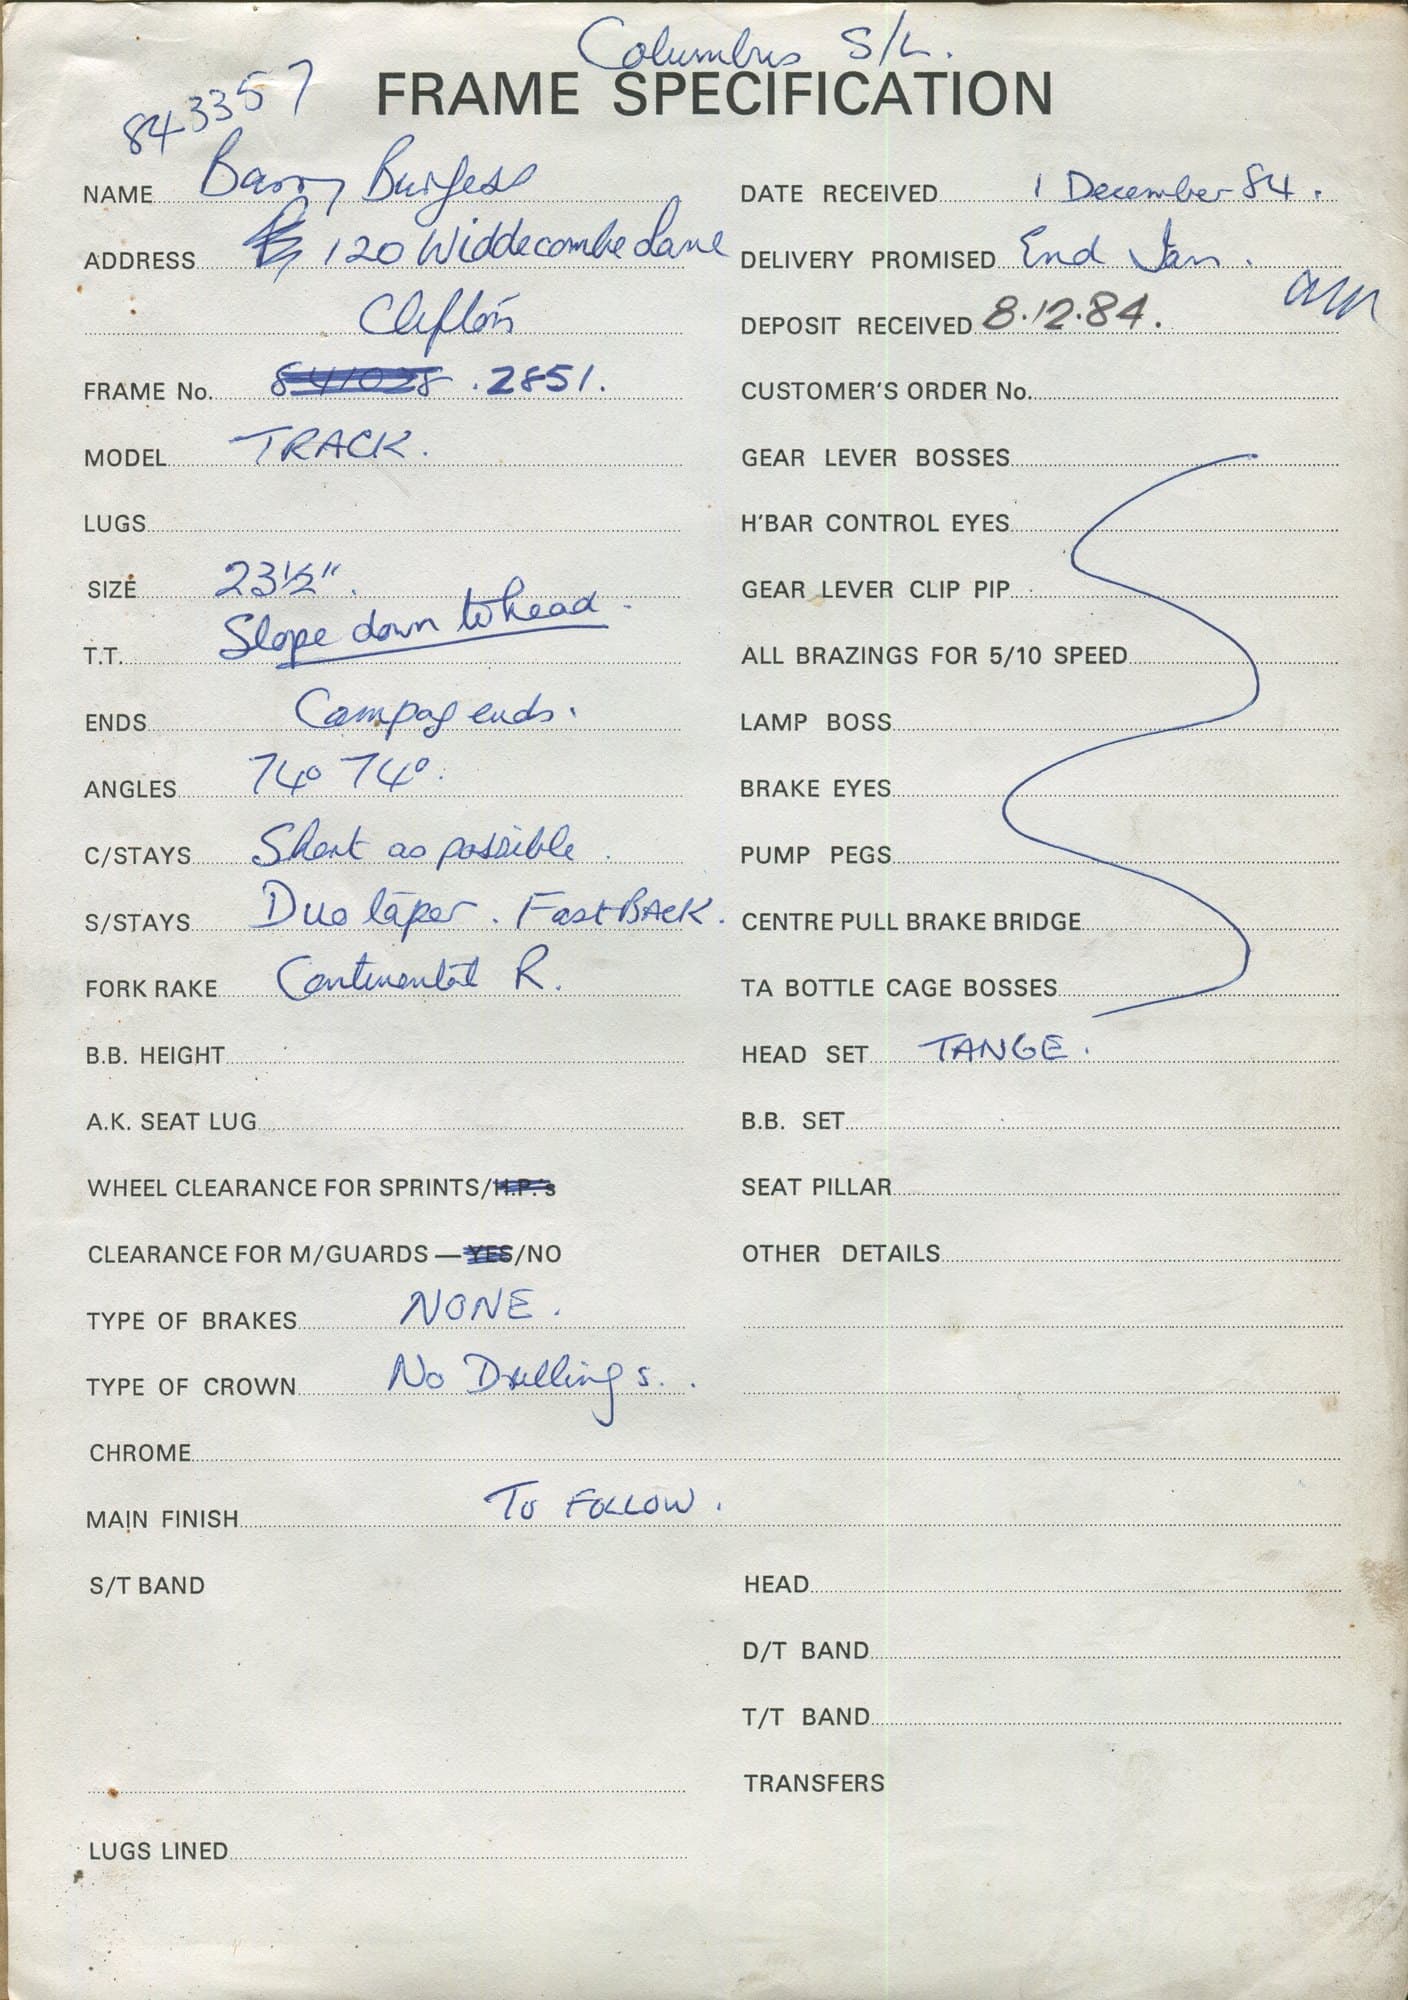 Columbus S/L.
FRAME SPECIFICATION
843357
NAME Barry Burgess
ADDRESS 120 Widdecombe Lane
Clifton
FRAME No. 841028 .2851.
MODEL TRACK.
LUGS
SIZE 23½".
T.T. Slope down to head.
ENDS Campag ends.
ANGLES 74° 74°.
C/STAYS Short as possible.
S/STAYS Duo taper. Fast BACK.
FORK RAKE Continental R.
B.B. HEIGHT
A.K. SEAT LUG
WHEEL CLEARANCE FOR SPRINTS/H.P.'s
CLEARANCE FOR M/GUARDS — YES/NO
TYPE OF BRAKES NONE.
TYPE OF CROWN No Drillings.
CHROME
MAIN FINISH TO FOLLOW.
S/T BAND
LUGS LINED
DATE RECEIVED 1 December 84.
DELIVERY PROMISED End Jan.
DEPOSIT RECEIVED 8.12.84.
CUSTOMER'S ORDER No.
GEAR LEVER BOSSES
H'BAR CONTROL EYES
GEAR LEVER CLIP PIP
ALL BRAZINGS FOR 5/10 SPEED
LAMP BOSS
BRAKE EYES
PUMP PEGS
CENTRE PULL BRAKE BRIDGE
TA BOTTLE CAGE BOSSES
HEAD SET TANGE.
B.B. SET
SEAT PILLAR
OTHER DETAILS
HEAD
D/T BAND
T/T BAND
TRANSFERS